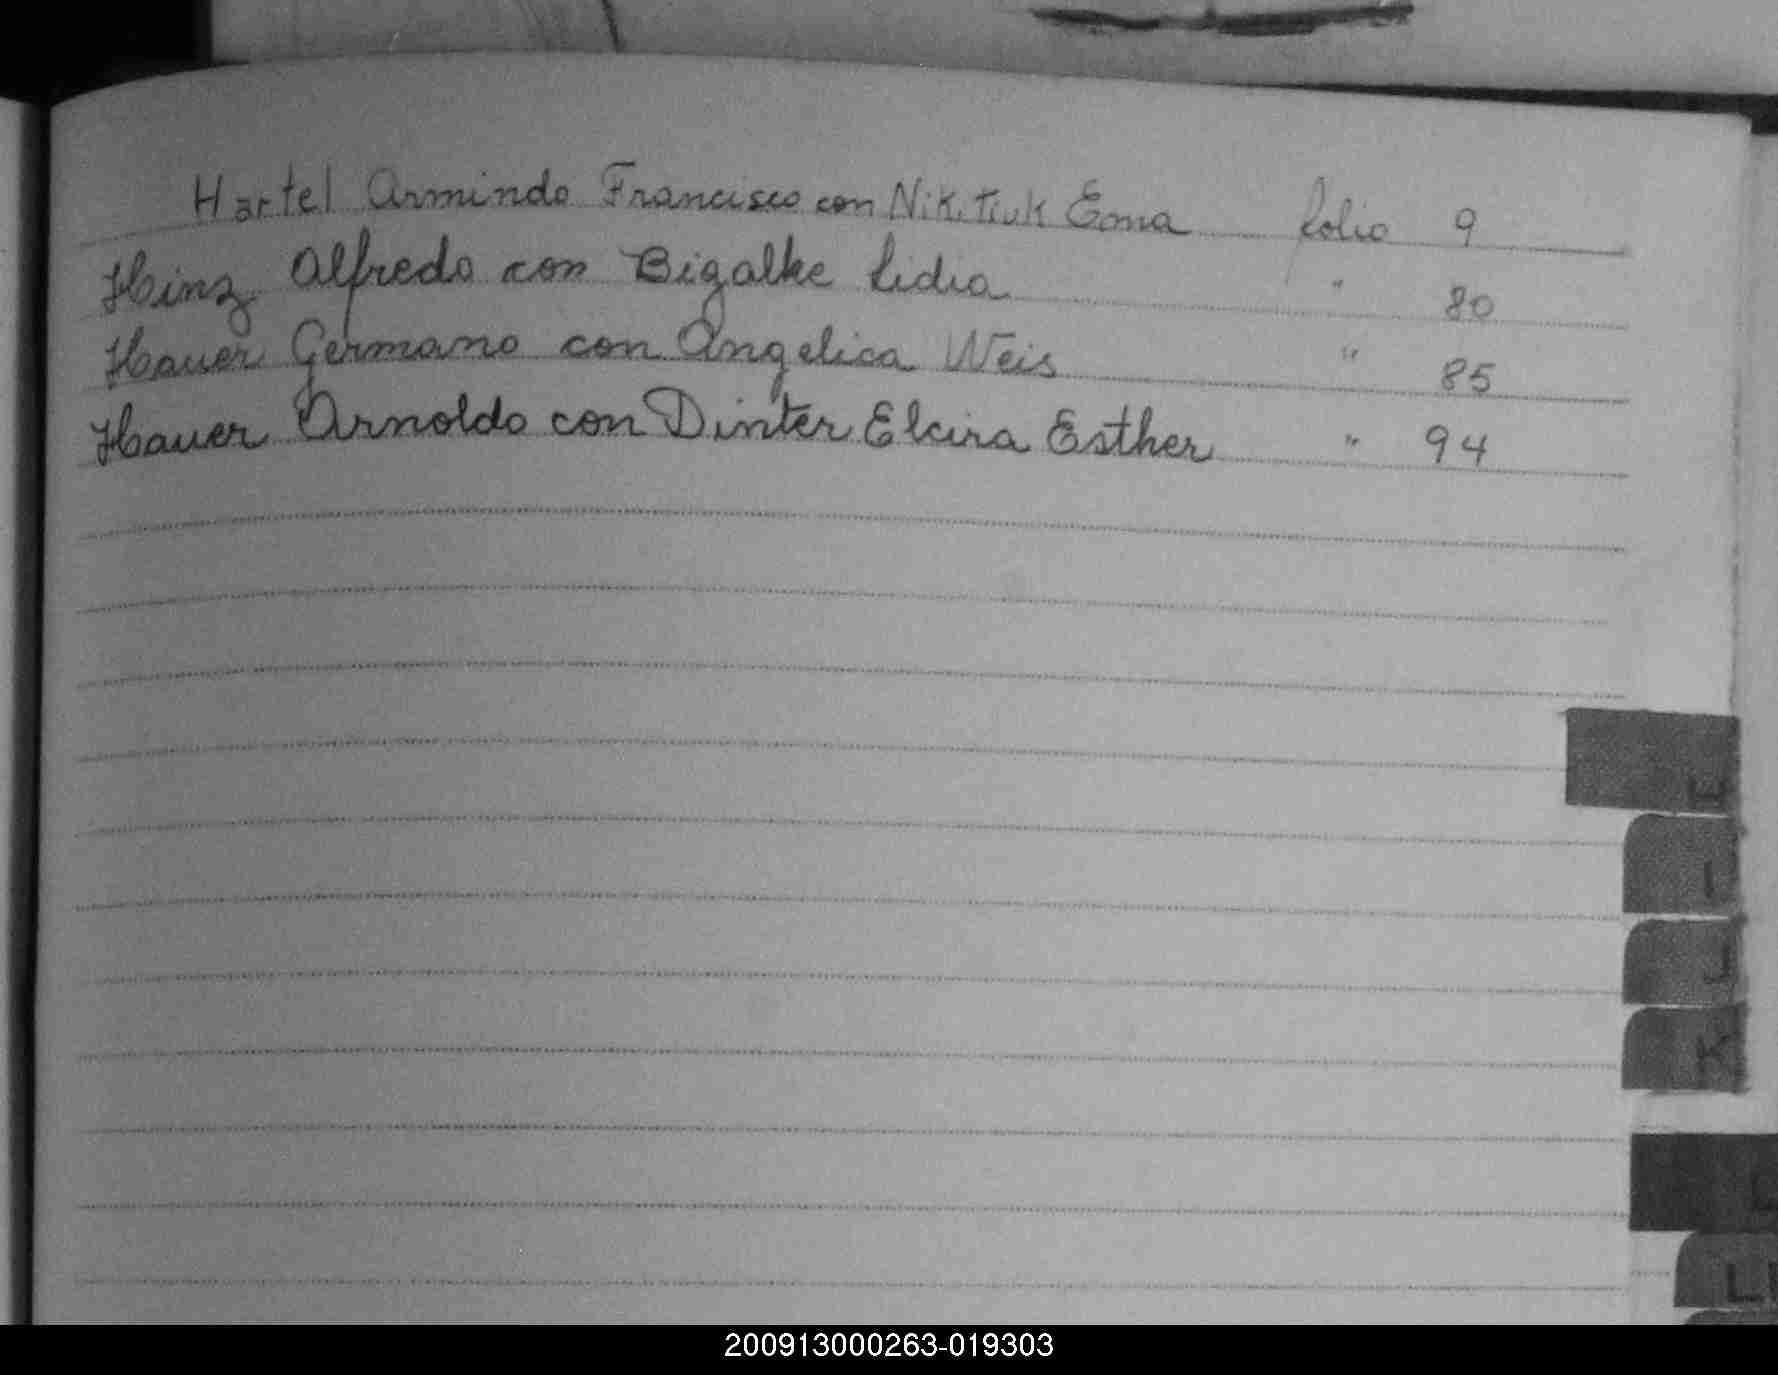 Hartel Armindo Francisco con Nikitiuk Ema folio 9
Hinz Alfredo con Bigalke Lidia " 80
Hauer Germano con Angelica Weis " 85
Hauer Arnoldo con Dinter Elcira Esther " 94
I
J
K
L
LL
200913000263-019303